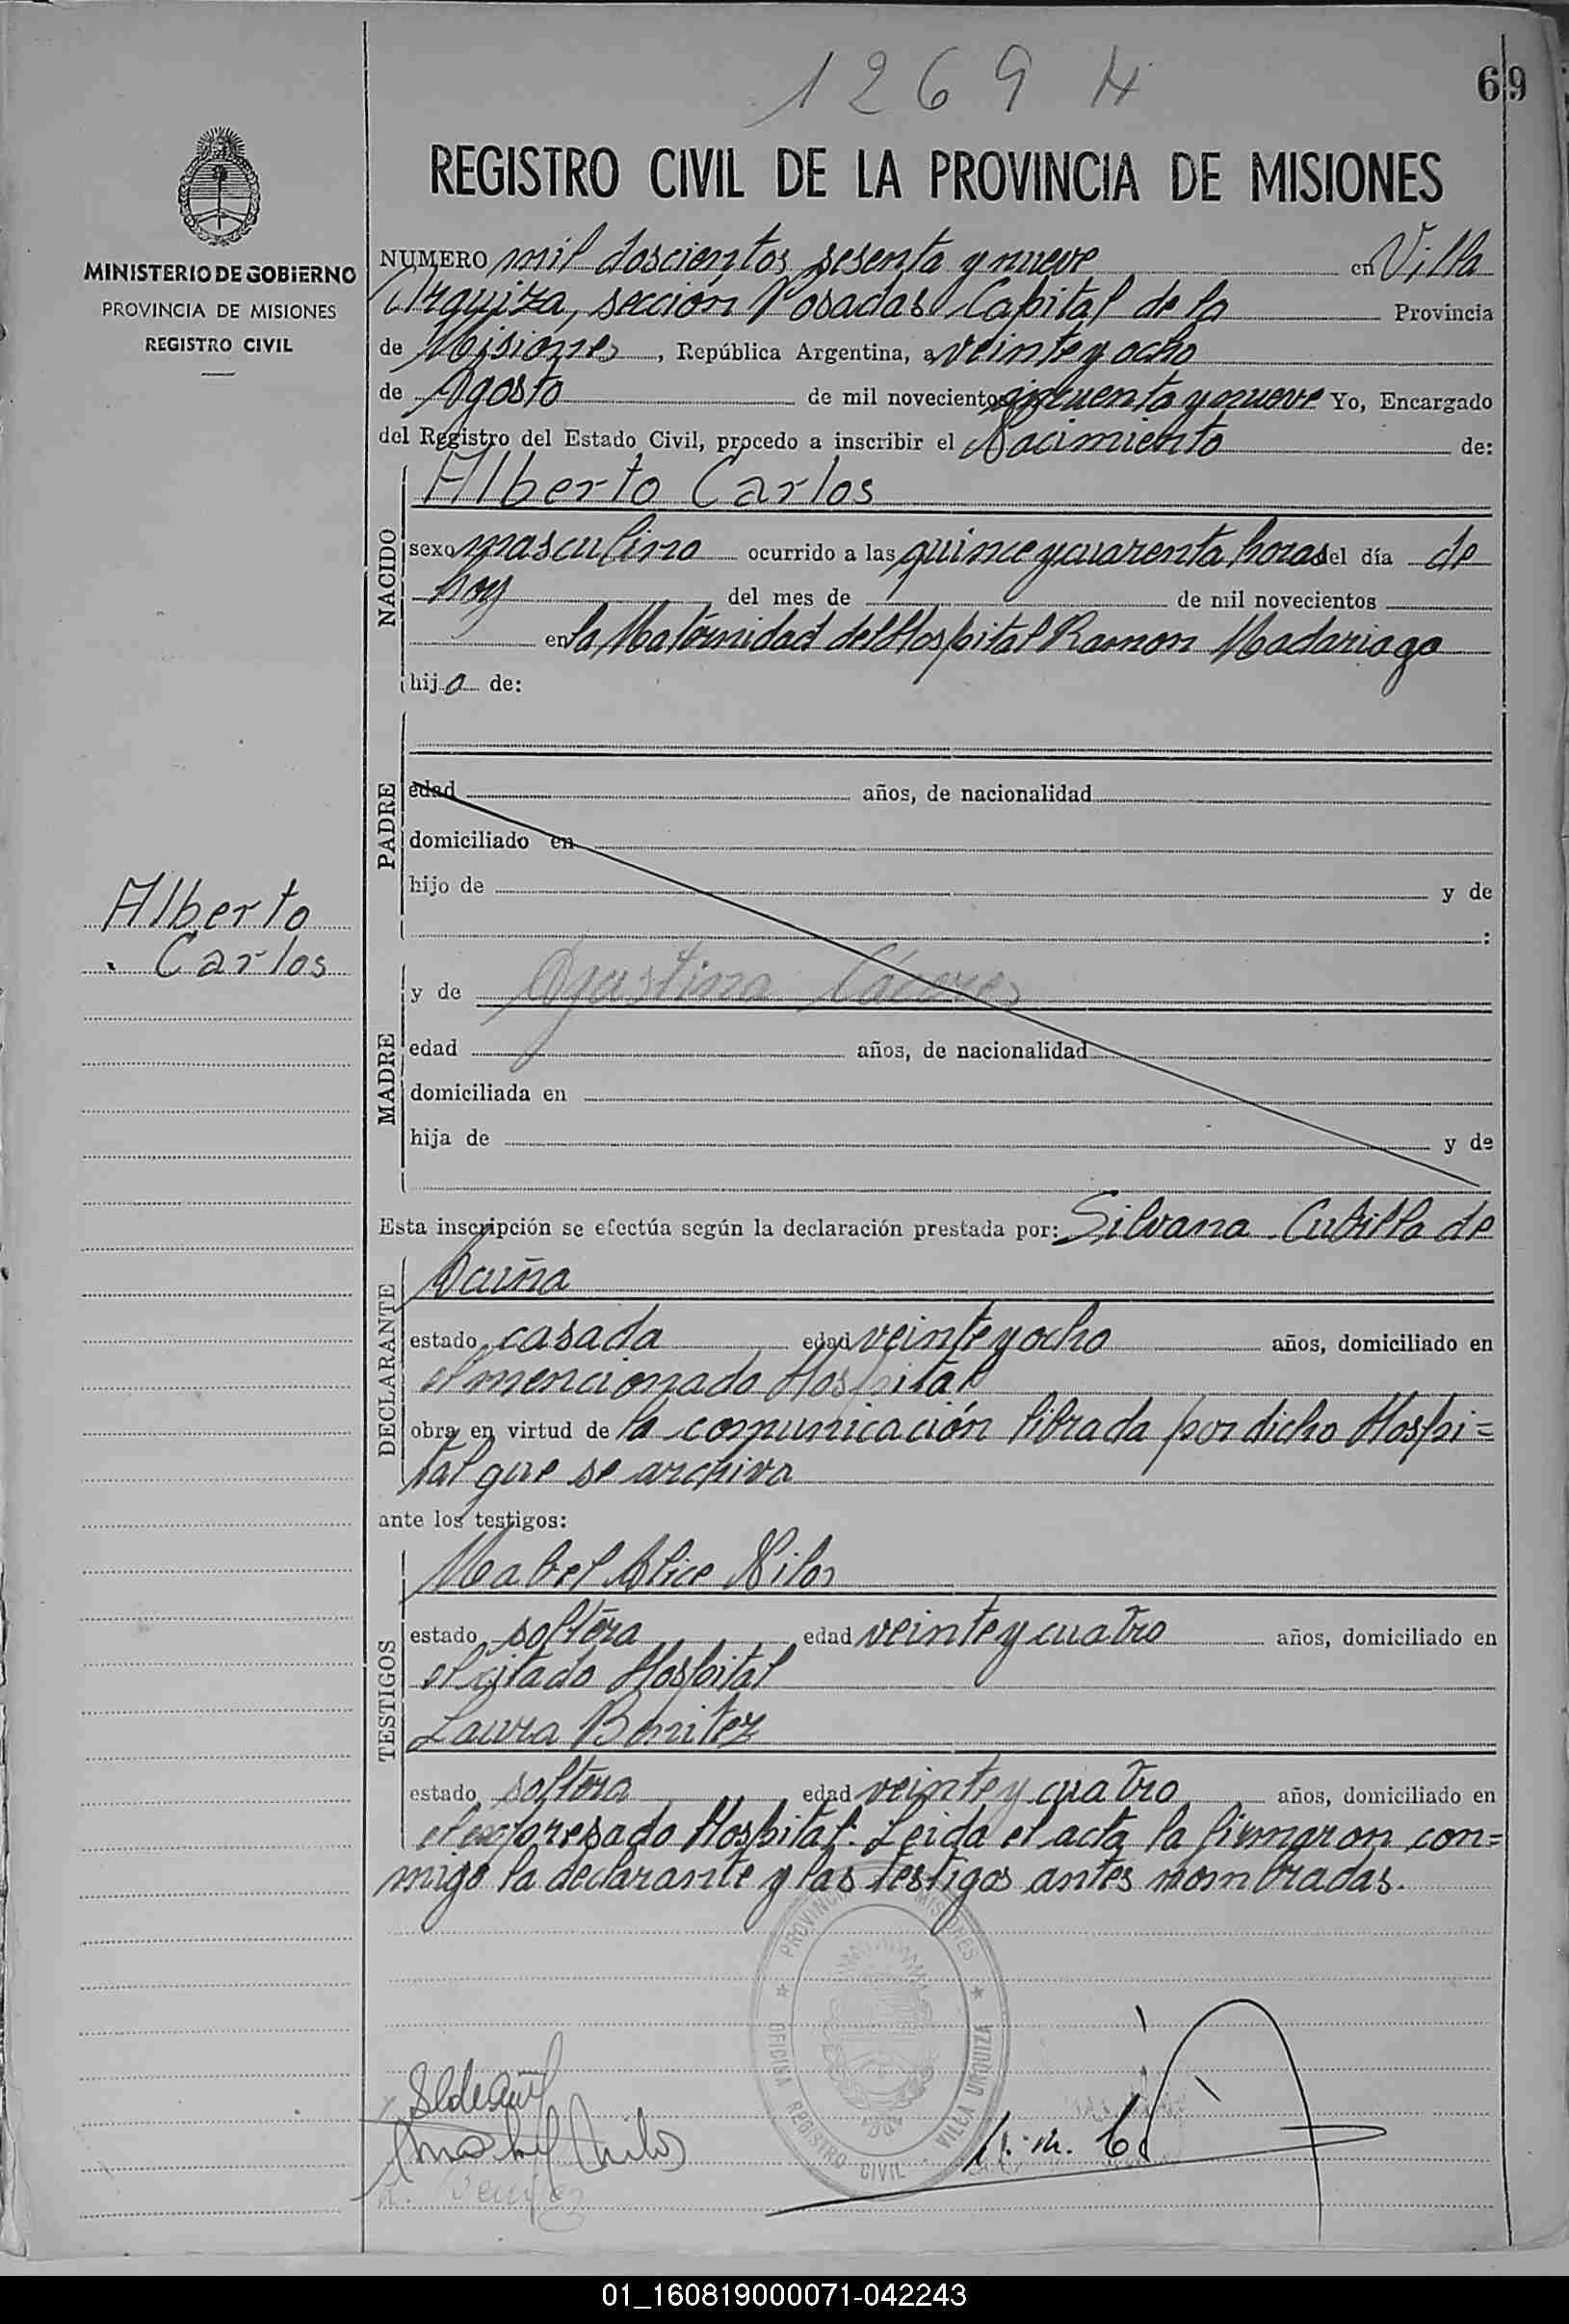 1269 N
69
REGISTRO CIVIL DE LA PROVINCIA DE MISIONES
MINISTERIO DE GOBIERNO
PROVINCIA DE MISIONES
REGISTRO CIVIL
NUMERO mil doscientos sesenta y nueve en Villa
Urquiza, sección Posadas Capital de la Provincia
de Misiones, República Argentina, a veinte y ocho
de Agosto de mil novecientos cincuenta y nueve Yo, Encargado
del Registro del Estado Civil, procedo a inscribir el Nacimiento de:
NACIDO
Alberto Carlos
sexo masculino ocurrido a las quince y cuarenta horas del día de
hoy del mes de de mil novecientos
en la Maternidad del Hospital Ramon Madariaga
hijo de:
PADRE
edad años, de nacionalidad
domiciliado en
hijo de y de
:
Alberto
Carlos
MADRE
y de Agustina Cáceres
edad años, de nacionalidad
domiciliada en
hija de y de
Esta inscripción se efectúa según la declaración prestada por: Silvana Cubilla de
DECLARANTE
Acuña
estado casada edad veinte y ocho años, domiciliado en
el mencionado Hospital
obra en virtud de la comunicación librada por dicho Hospi=
tal que se archiva
ante los testigos:
TESTIGOS
Mabel Alice Nilos
estado soltera edad veinte y cuatro años, domiciliado en
el citado Hospital
Laura Benitez
estado soltera edad veinte y cuatro años, domiciliado en
el expresado Hospital. Leida el acta la firmaron con=
migo la declarante y las testigos antes nombradas.
PROVINCIA MISIONES
OFICINA REGISTRO CIVIL - VILLA URQUIZA
01_160819000071-042243